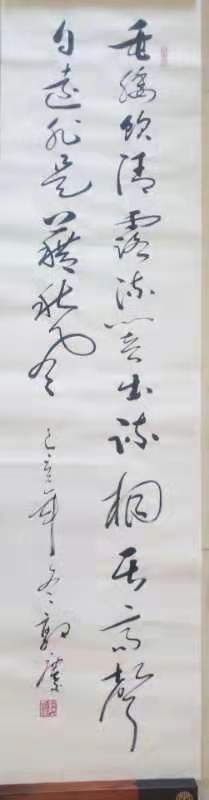 垂緌饮清露流響出疏桐居高聲
自遠非是藉秋风 己亥年冬 郭